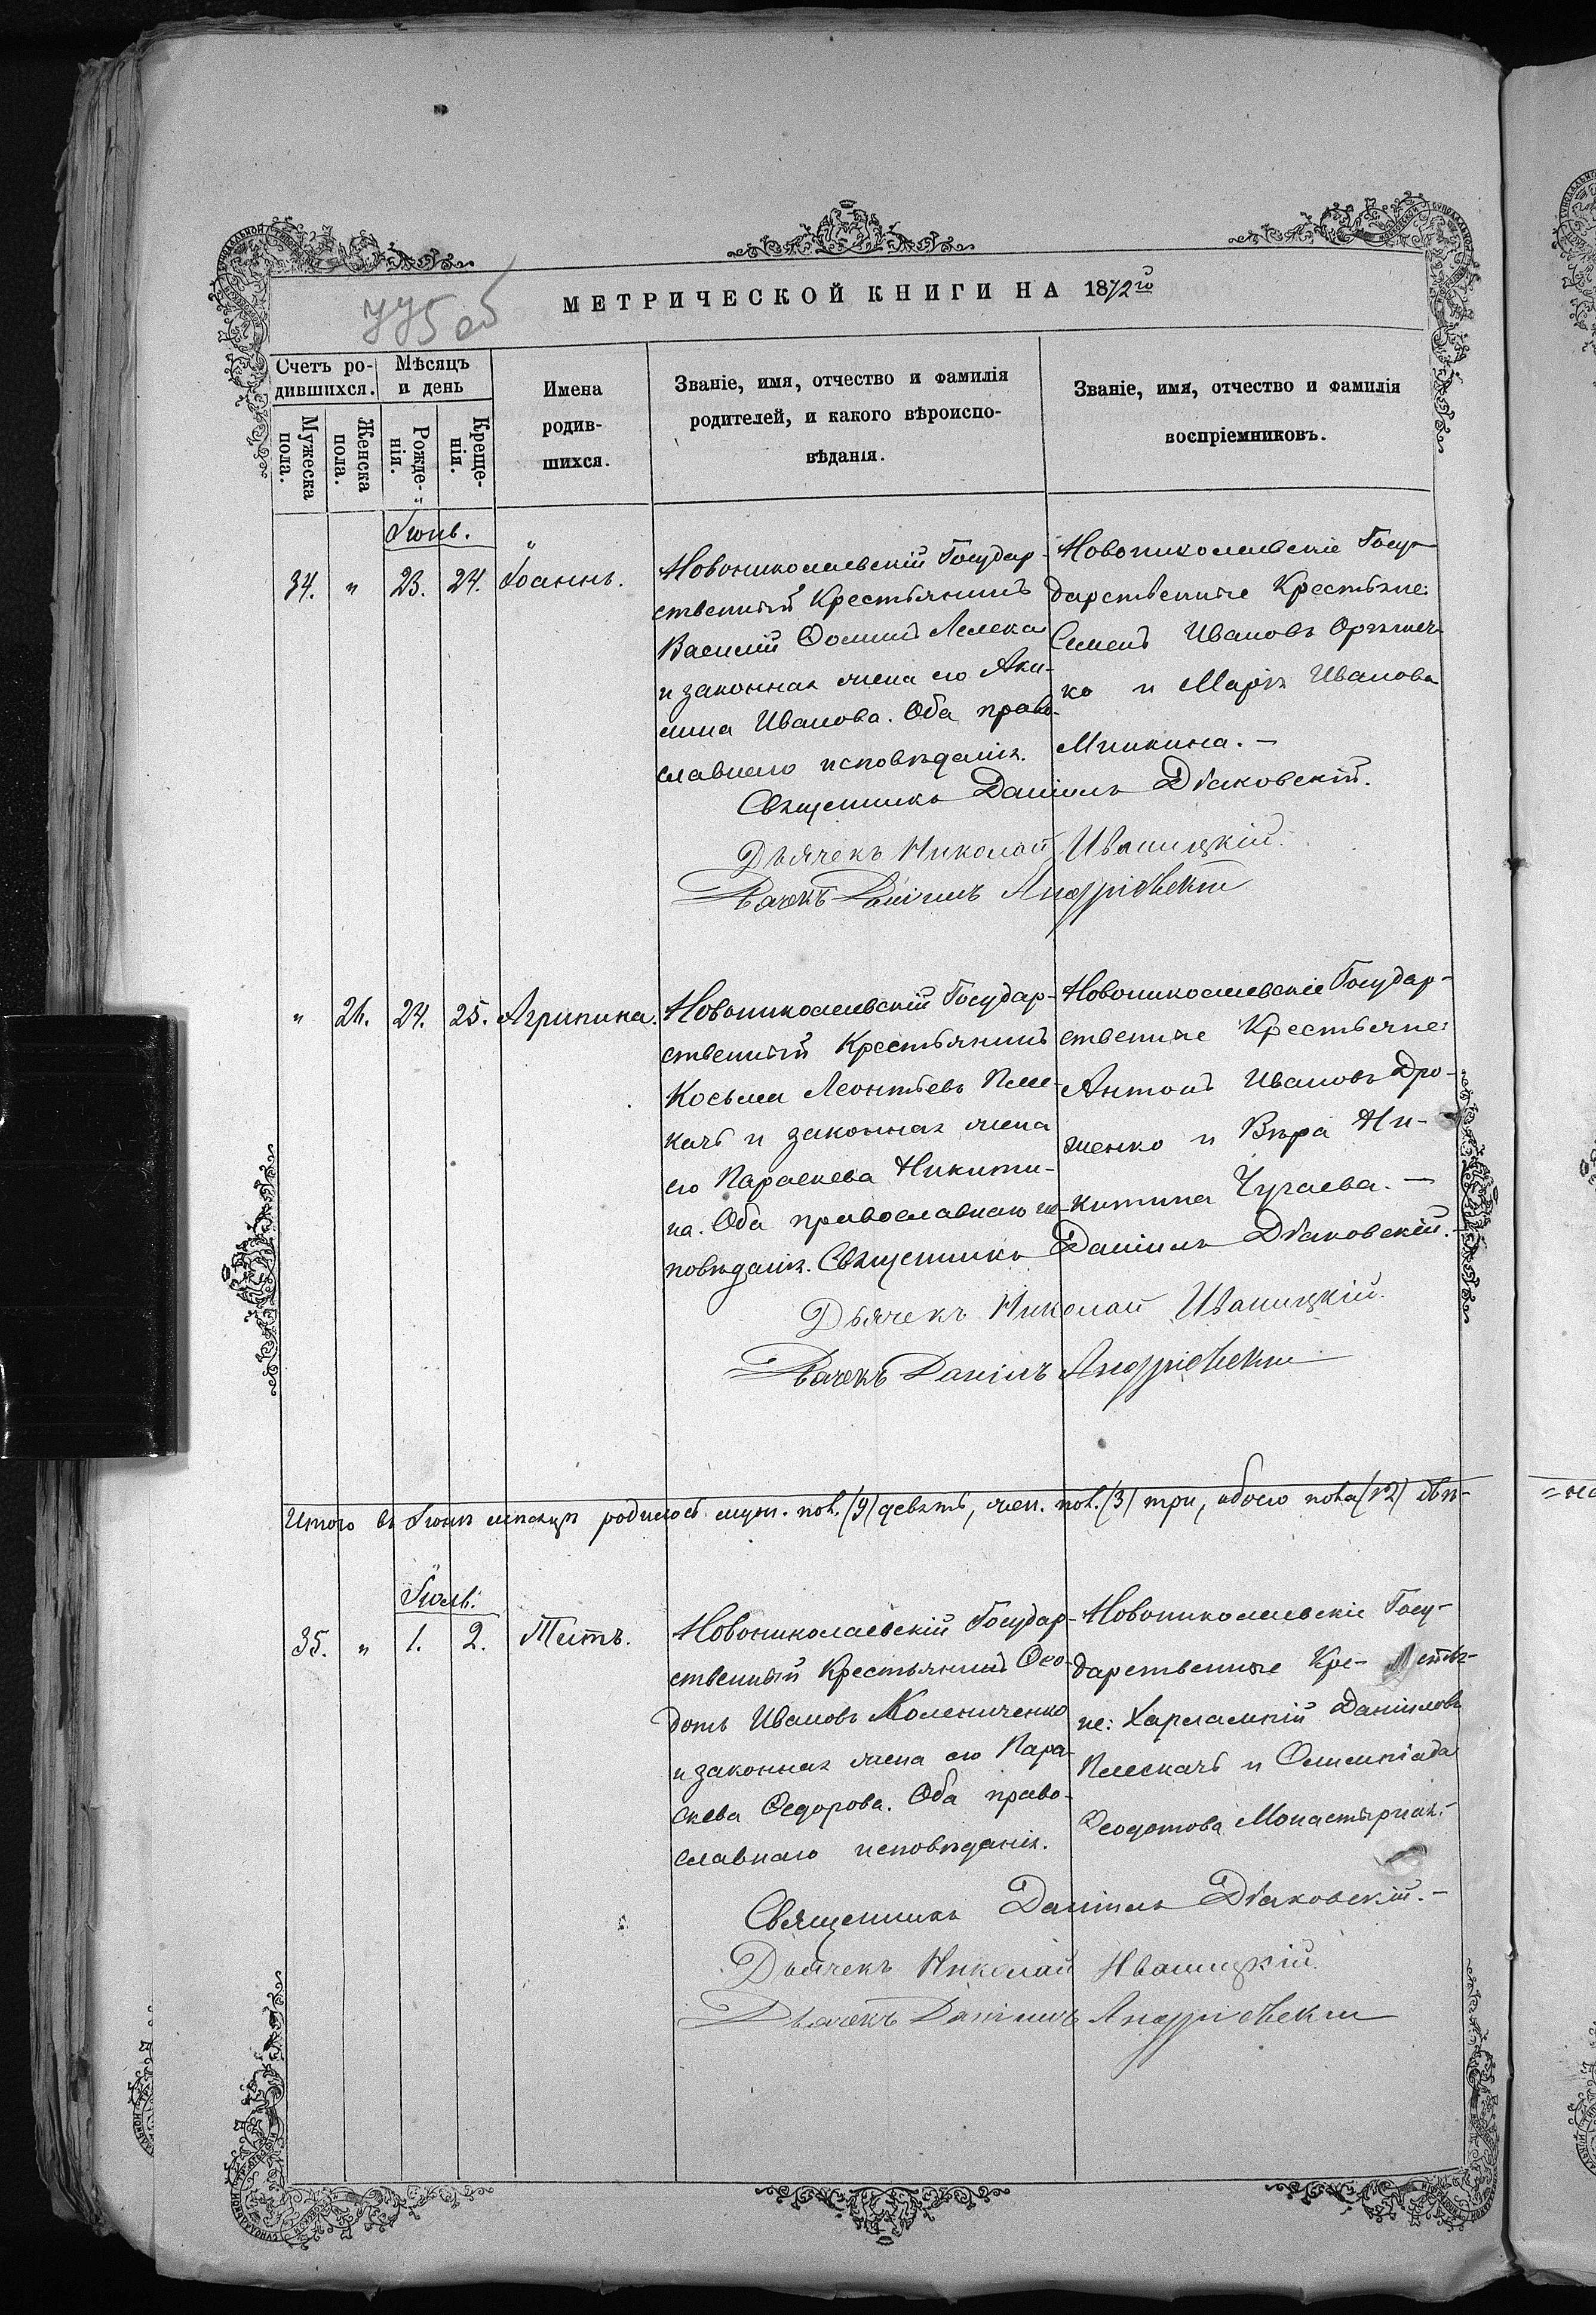 775 об
МЕТРИЧЕСКОЙ КНИГИ НА 1872го
Счетъ ро-
дившихся.
Мѣсяцъ
и день
Мужеска
пола.
Женска
пола.
Рожде-
нія.
Креще-
нія.
Имена
родив-
шихся.
Званіе, имя, отчество и фамилія
родителей, и какого вѣроиспо-
вѣданія.
Званіе, имя, отчество и фамилія
воспріемниковъ.
Іюнь.
34. " 23. 24. Іоаннъ.
Новониколаевскій Государ-
ственный Крестьянинъ
Василій Фоминъ Лелека
и законная жена его Аки-
лина Ивановa. Оба право-
славнаго исповѣданія.
Новониколаевскіе Госу-
дарственные Крестьяне:
Семенъ Ивановъ
ко и Марія Иванова
Мишкина. –
Священникъ Даніилъ Дьяковскій.
Дьячекъ Николай Иваницкій.
Дьячекъ Даніилъ Андріевскій
" 21. 24. 25. Агрипина.
Новониколаевскій Государ-
ственный Крестьянинъ
Косьма Леонтьевъ Плис-
качъ и законная жена
его Параскева Никити-
на. Оба православнаго ис-
повѣданія.
Новониколаевскіе Государ-
ственные Крестьяне:
Антонъ Ивановъ Дро-
женко и Вѣра Ни-
китина Чугаева. –
Священникъ Даніилъ Дьяковскій. –
Дьячекъ Николай Иваницкій.
Дьячекъ Даніилъ Андріевскій
Итого въ Іюнѣ мѣсяцѣ родилось муж. пол. (9) девять, жен. пол. (3) три, обоего пола (12) двѣ-
Іюль.
35. " 1. 2. Титъ.
Новониколаевскій Государ-
ственный Крестьянинъ Ѳео-
дотъ Ивановъ Колениченко
и законная жена его Пара-
скева Ѳедорова. Оба право-
славнаго исповѣданія.
Новониколаевскіе Госу-
дарственные Кре- стья-
не: Харлампій Даніиловъ
Плескачъ и Олимпіада
Ѳеодотова Монастырная.
Священникъ Даніилъ Дьяковскій. –
Дьячекъ Николай Иваницкій.
Дьячекъ Даніилъ Андріевскій